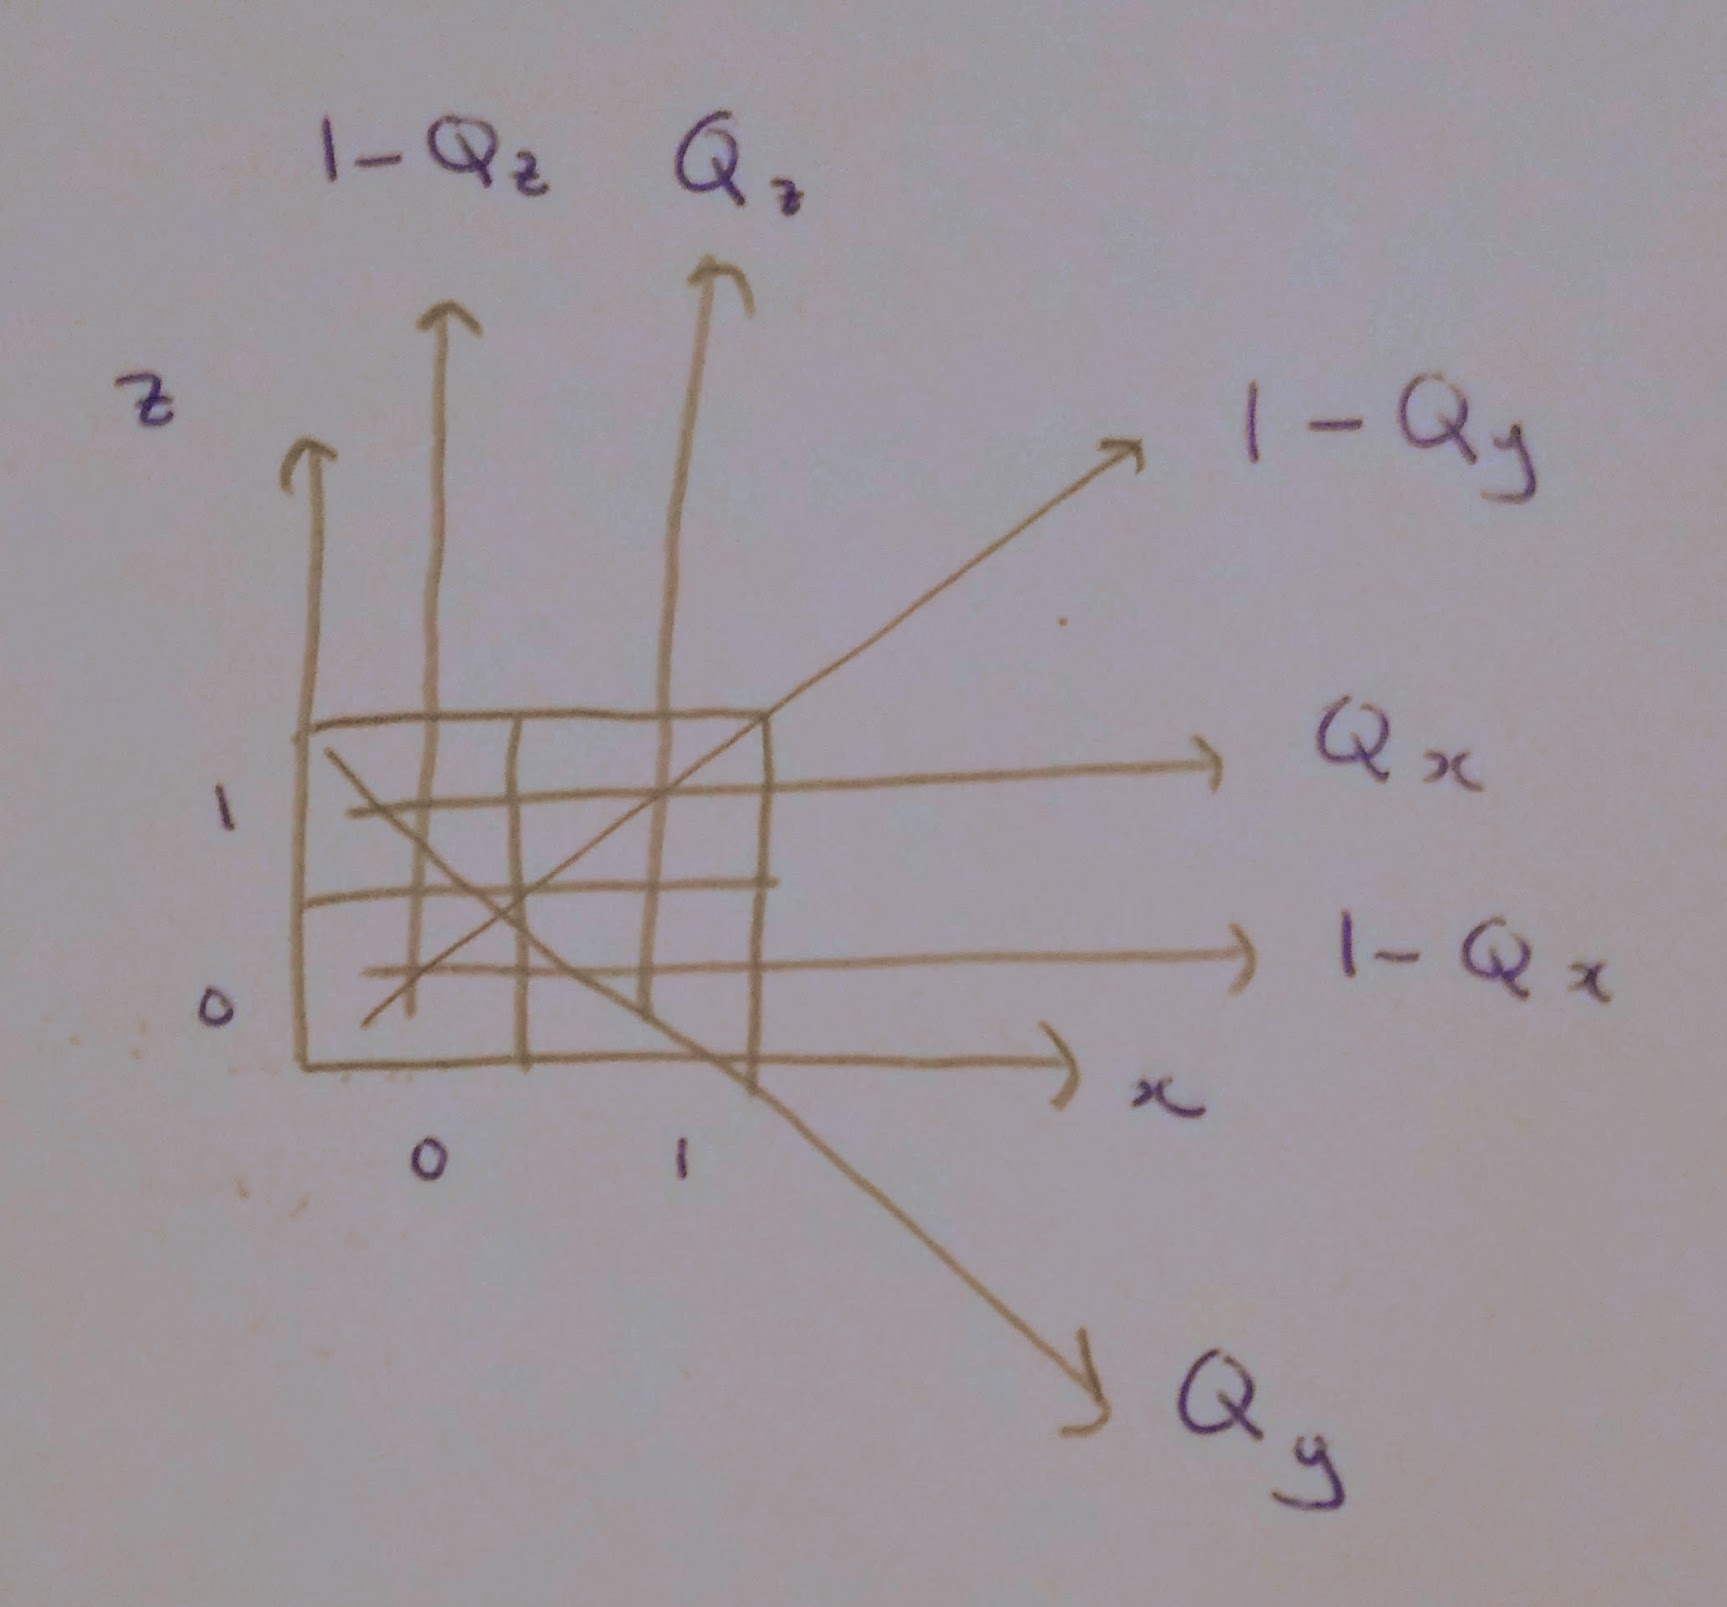 1-Qz Qz
z
1-Qy
Qx
1
1-Qx
0
x
0 1
Qy